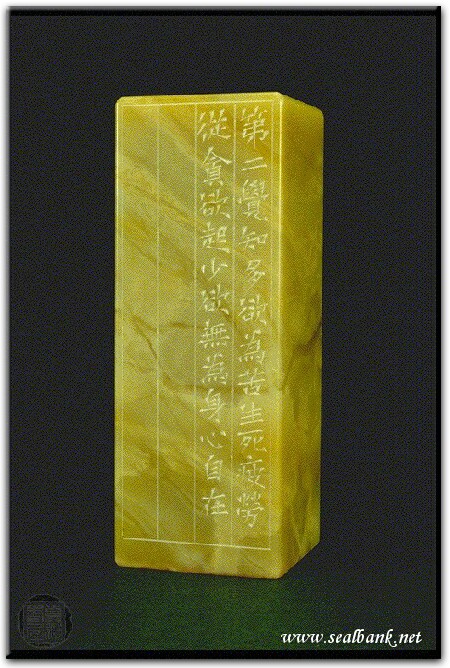 第二覺知多欲為苦生死疲勞
從貪欲起少欲無為身心自在
www.sealbank.net